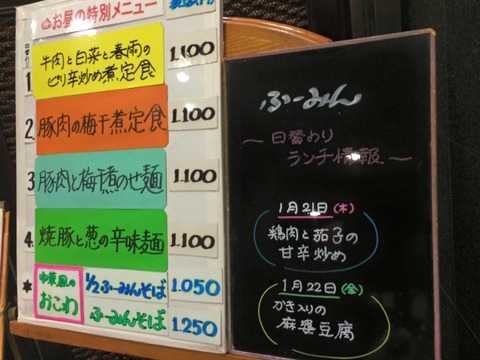 お昼の特別メニュー
1 牛肉と白菜と春雨の
ピリ辛炒め煮定食 1.100
2. 豚肉の梅干煮定食 1.100
3. 豚肉と梅干煮のせ麺 1.100
4. 焼豚と葱の辛味麺 1.100
* 中華風の
おこわ
1/2ふーみんそば 1.050
ふーみんそば 1.250
ふーみん
~日替わり
ランチ情報~
1月21日(木)
鶏肉と茄子の
甘辛炒め
1月22日(金)
かき入りの
麻婆豆腐